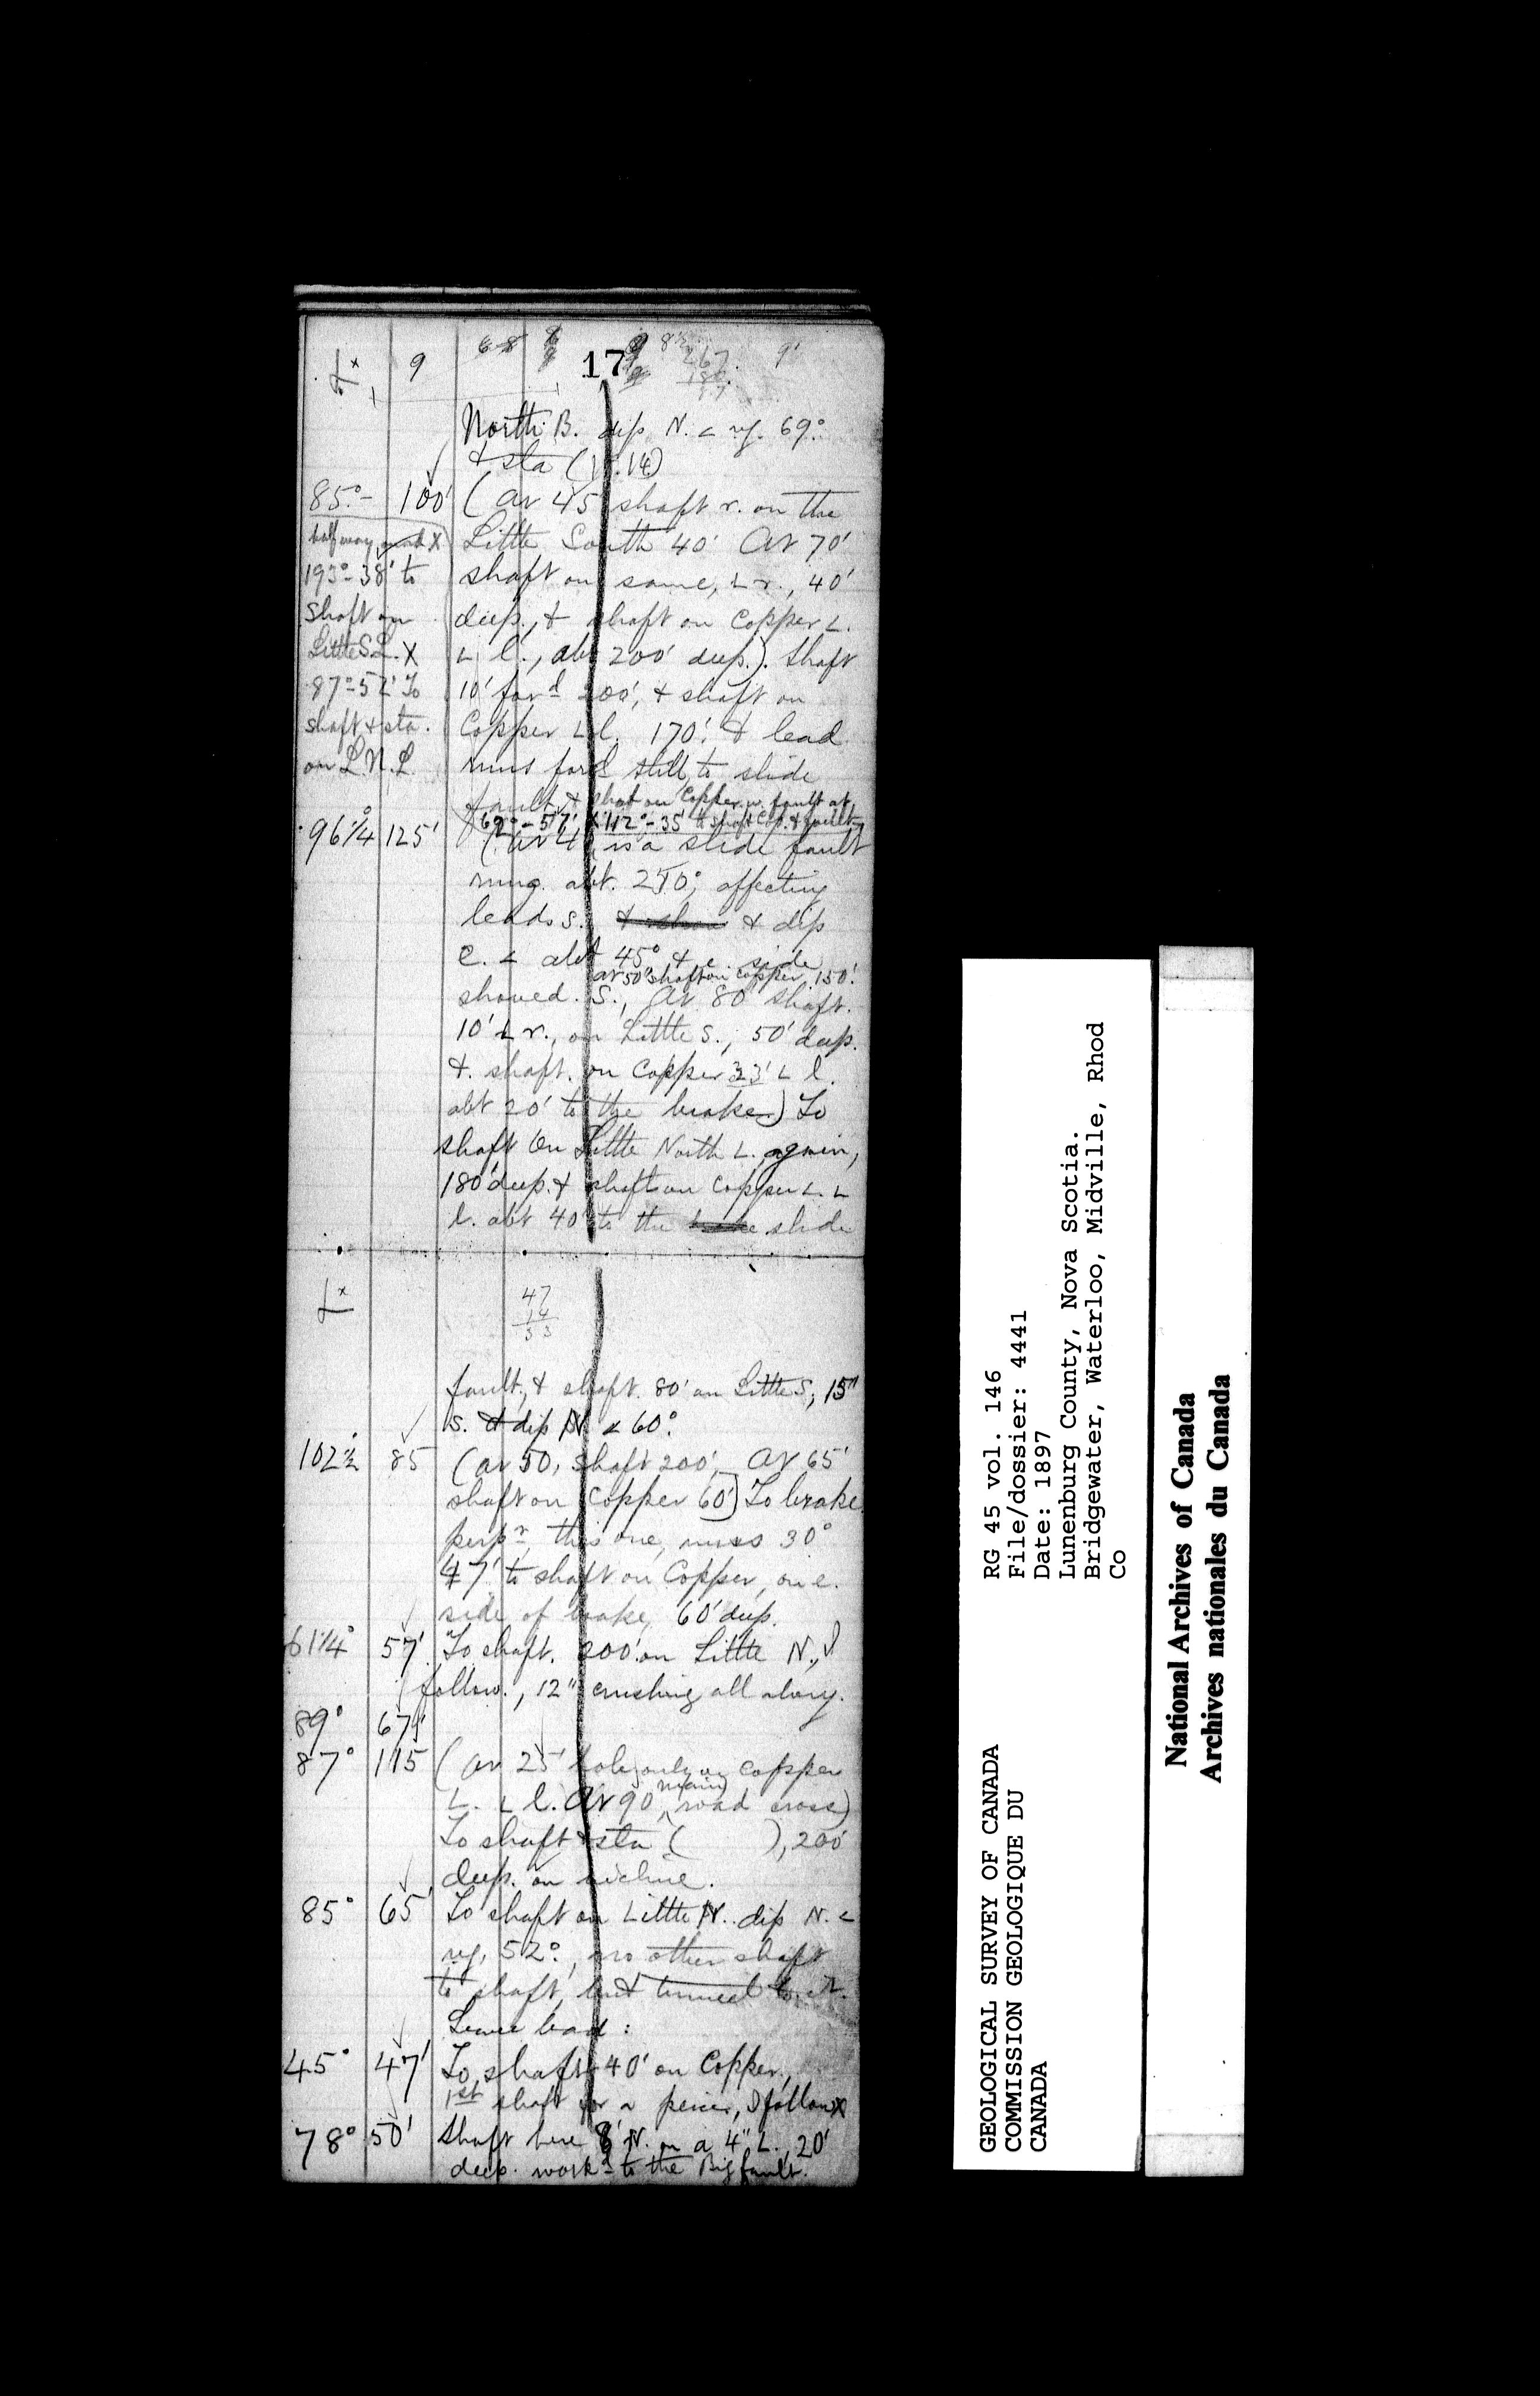 9
17
North B. dip N. < 69°
& sta (
85° - 100' (at 45 shaft r. on the
halfway, road x
Little South 40' At 70'
193° - 38' to
shaft on same, L r., 40'
shaft on
deep, & shaft on Copper L.
Little S L. x
L l., abt 200' deep.). Shaft
87° - 52' To
10' ford 200', & shaft on
shaft & sta.
Copper L l. 170'. & lead
on L. N. L.
runs ford still to slide
fault & shaft on Copper w. fault at
62° - 57' & 112° - 35' to shaft Cop. & fault
96 1/4° 125' (at 4 is a slide fault
abt. 250°, affecting
leads s. & dip
e. < abt 45° & e. side
at 50' shaft on Copper 150'.
shoved S., At 80 shaft
10' L r., on Little S., 50' deep.
& shaft on Copper 33' L l.
abt 20' to the brake) To
shaft on Little North L. again,
180' deep. & shaft on Copper L. L
l. abt 40' to the slide
47
14
33
fault, & shaft 80' on Little S, 15"
s. & dip N. < 60°
102 1/2° 85 (at 50, shaft 200', At 65'
shaft on Copper 60') To brake
perpr this one, runs 30°
47' to shaft on Copper, on e.
side of brake, 60' deep.
61 1/4° 57' To shaft 200' on Little N.,
follow., 12" crushing all along.
89° 67'
87° 115 (at 25' hole only on copper
L. L l. At 90, main road cross)
To shaft & sta ( ), 200'
deep. on incline.
85° 65' To shaft on Little N. dip N. <
52°, no other shaft
to shaft, but tunnel to it.
Leave lead:
45° 47' To shaft 40' on Copper,
1st shaft for a piece, I follow x
78° 50' Shaft here 8' N. on a 4" L., 20'
deep. workd to the Big fault.
GEOLOGICAL SURVEY OF CANADA
COMMISSION GEOLOGIQUE DU
CANADA
RG 45 vol. 146
File/dossier: 4441
Date: 1897
Lunenburg County, Nova Scotia.
Bridgewater, Waterloo, Midville, Rhod
Co
National Archives of Canada
Archives nationales du Canada